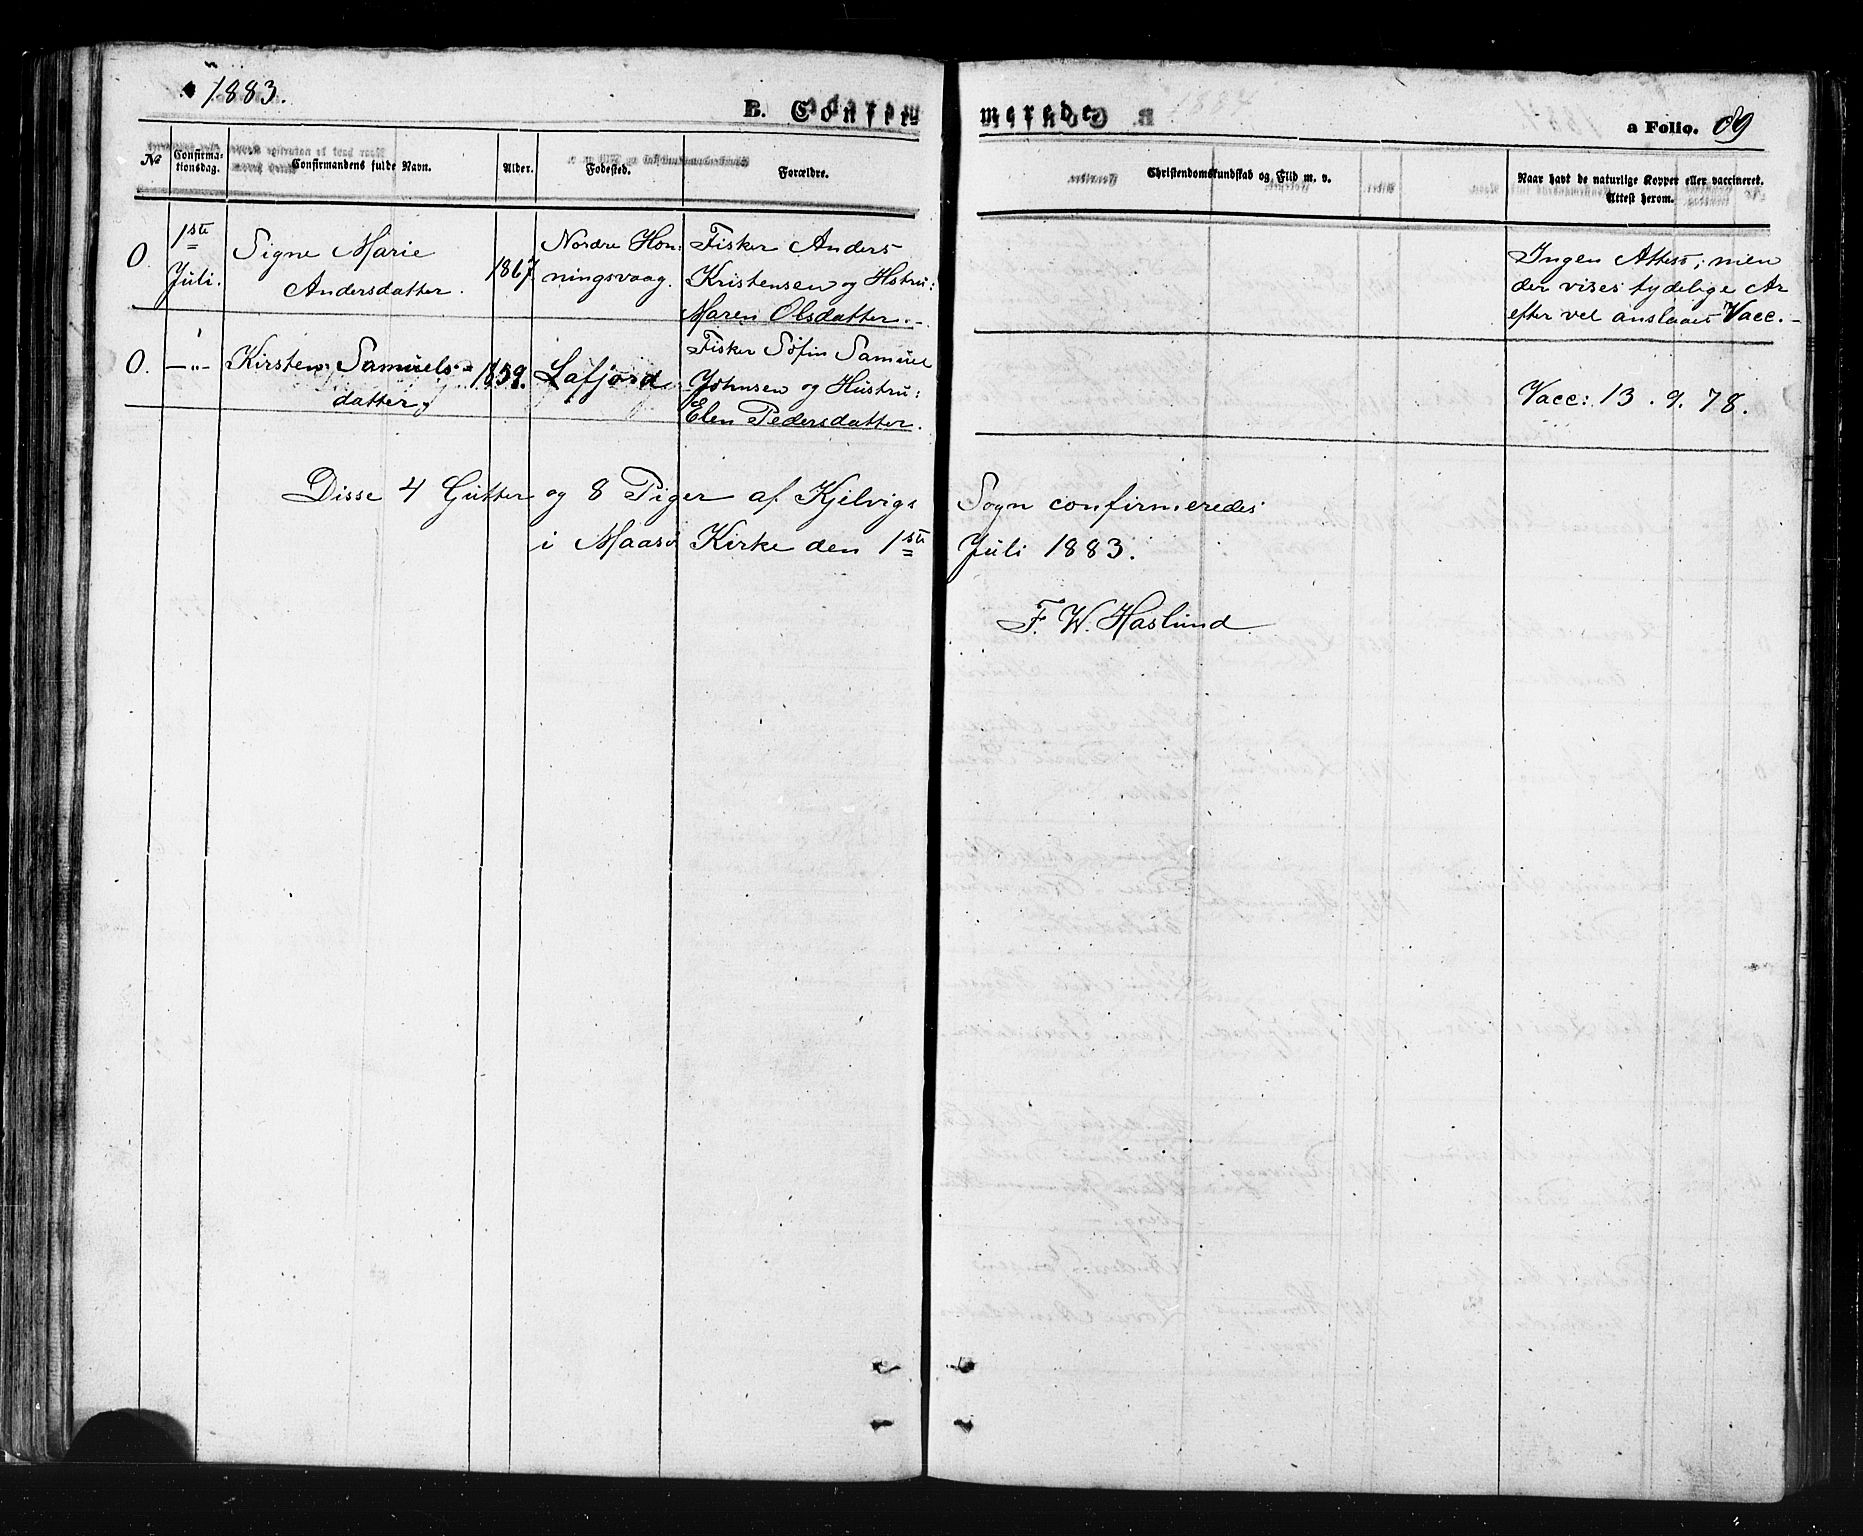 1883.
B. Confirmerede.
a Folio. 89
No
Confirmationsdag.
Confirmandens fulde Navn.
Alder.
Fødested.
Forældre.
Christendomskundskab og Flid m. v.
Naar havt de naturlige Kopper eller vaccineret.
Attest herom.
0. 1ste Juli.
Signe Marie
Andersdatter.
1867
Nordre Hon:
ningsvaag.
Fisker Anders
Kristensen og Hstru:
Maren Olsdatter.
Ingen Attest; men
der vises tydelige Ar
efter vel anslaaet Vacc.
0. —"—
Kirsten Samuels-
datter.
1859.
Lafjord
Fisker Søfin Samuel
Johnsen og Hustru:
Elen Pedersdatter.
Vacc: 13. 9. 78.
Disse 4 Gutter og 8 Piger af Kjelvigs Sogn confirmeredes
i Maasø Kirke den 1ste Juli 1883.
F. W. Haslund